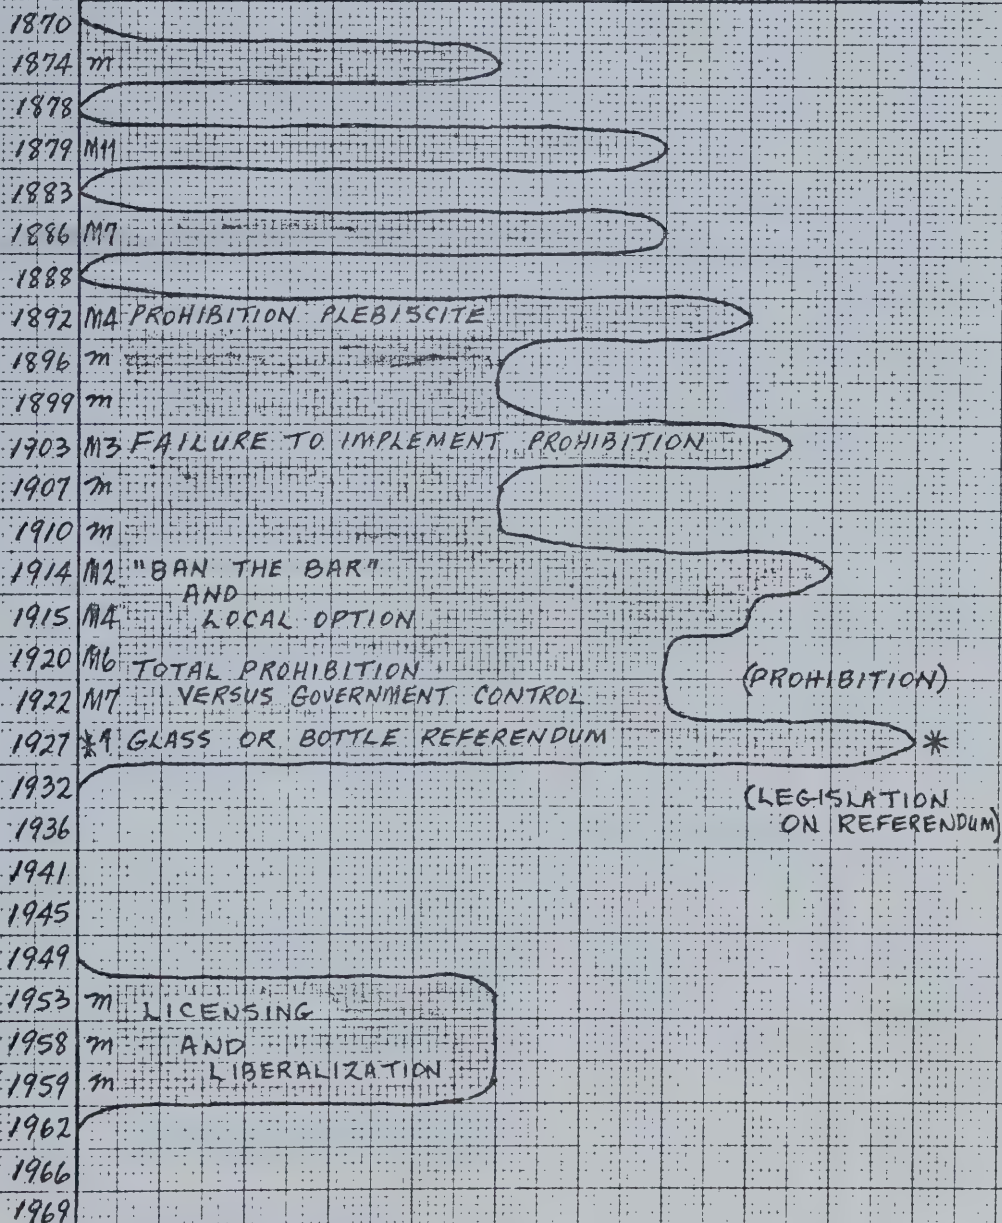 1870
1874 m
1878
1879 M11
1883
1886 M7
1888
1892 M4 PROHIBITION PLEBISCITE
1896 m
1899 m
1903 M3 FAILURE TO IMPLEMENT PROHIBITION
1907 m
1910 m
1914 M2 "BAN THE BAR"
AND
1915 M4 LOCAL OPTION
1920 M6 TOTAL PROHIBITION (PROHIBITION)
1922 M7 VERSUS GOVERNMENT CONTROL
1927 *1 GLASS OR BOTTLE REFERENDUM *
1932 (LEGISLATION
1936 ON REFERENDUM)
1941
1945
1949
1953 m LICENSING
1958 m AND
1959 m LIBERALIZATION
1962
1966
1969